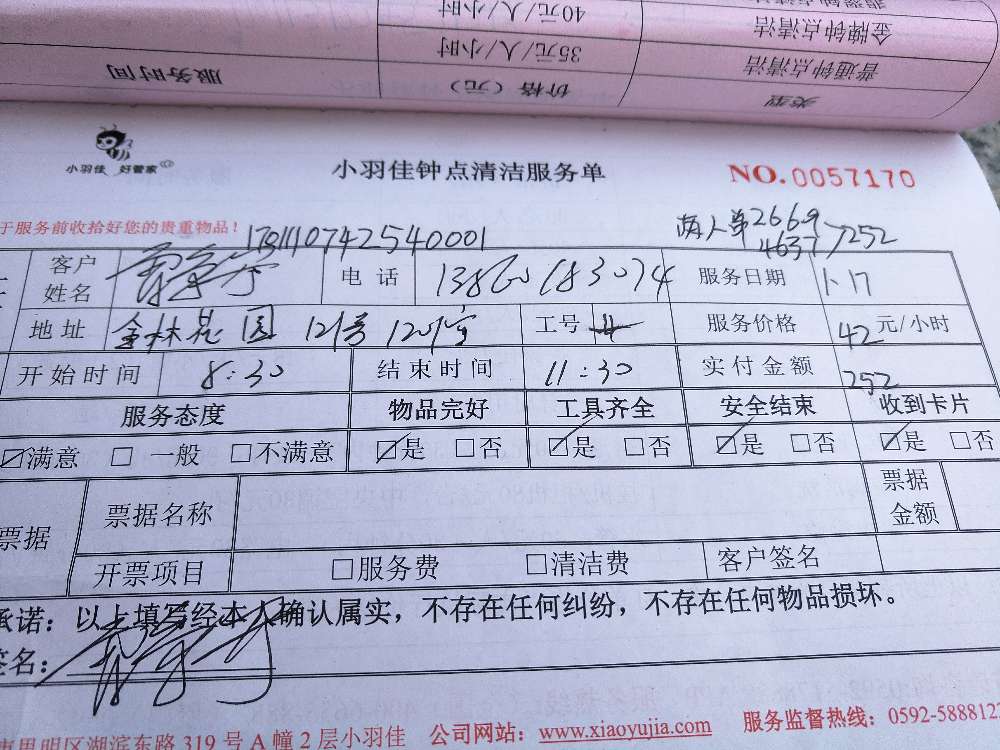 40元/人/小时
金牌钟点清洁
35元/人/小时
普通钟点清洁
服务时间
价格（元）
类型
小羽佳 好管家
小羽佳钟点清洁服务单
NO.0057170
于服务前收拾好您的贵重物品！
1701110742540001
两人单2669
4637
252
客户姓名
电话 13860183074
服务日期 1.17
地址 金林苑园 121号 1201室
工号
服务价格 42元/小时
开始时间 8:30
结束时间 11:30
实付金额 252
服务态度 物品完好 工具齐全 安全结束 收到卡片
☑满意 □一般 □不满意 ☑是 □否 ☑是 □否 ☑是 □否 ☑是 □否
票据
票据名称
票据金额
开票项目 □服务费 □清洁费 客户签名
承诺：以上填写经本人确认属实，不存在任何纠纷，不存在任何物品损坏。
签名：
思明区湖滨东路 319 号 A 幢 2 层小羽佳 公司网站：www.xiaoyujia.com 服务监督热线：0592-5888122